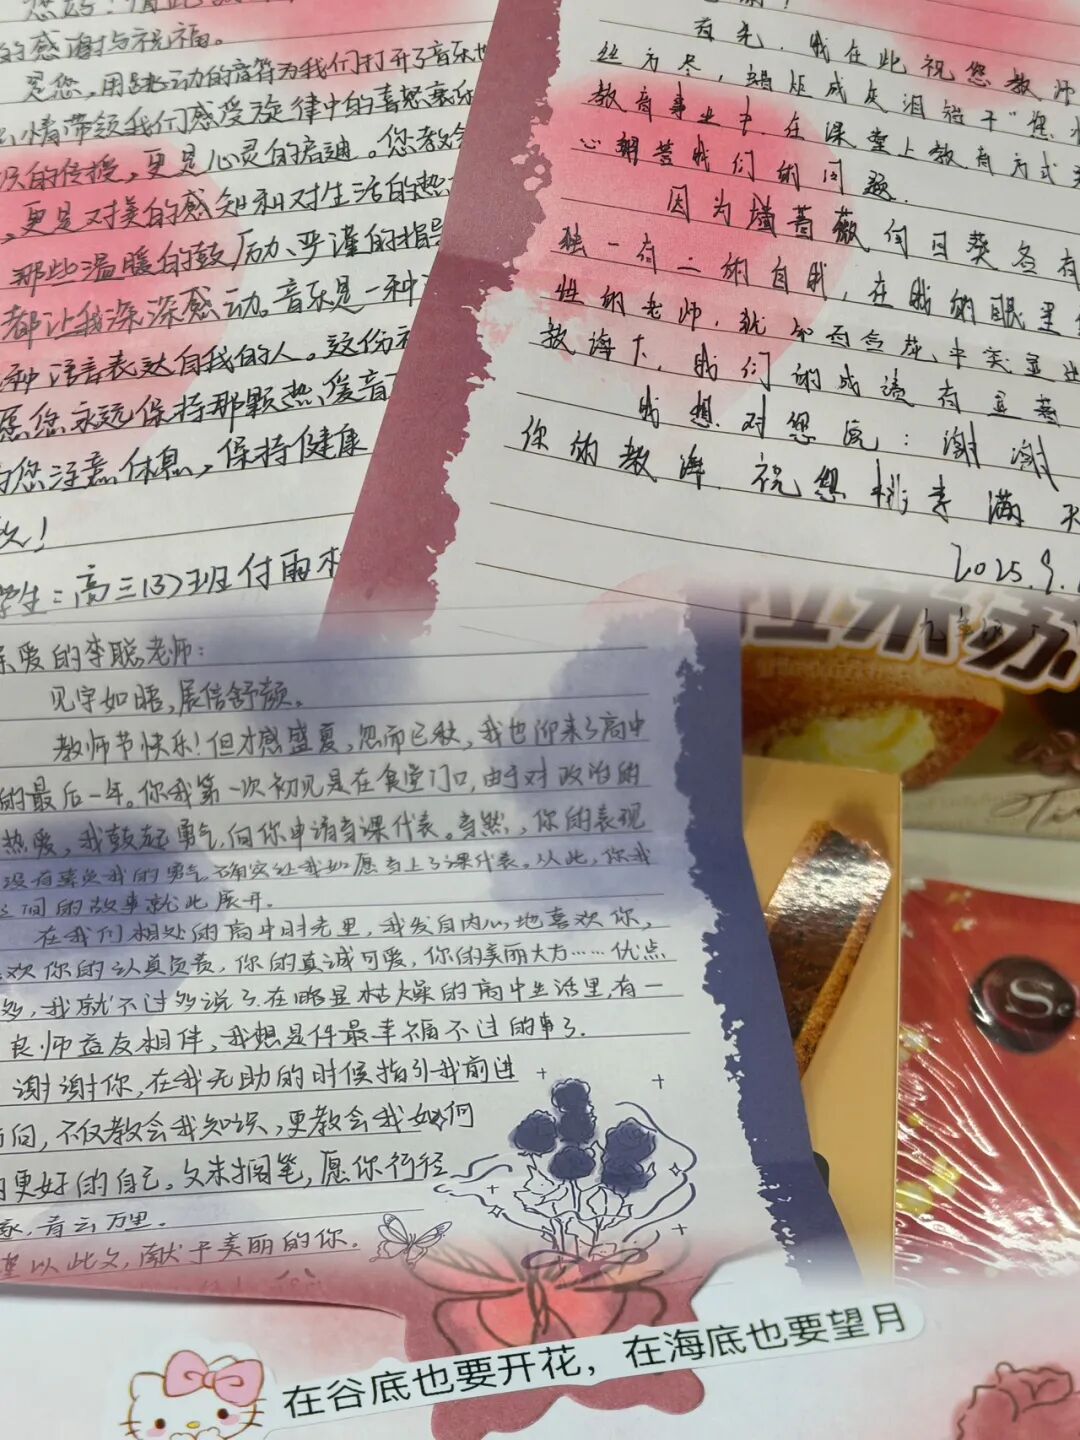 的感谢与祝福。
是您,用跳动的音符为我们打开了音乐
情带领我们感受旋律中的喜怒哀乐
识的传授,更是心灵的启迪。您教会
,更是对美的感知和对生活的热
那些温暖的鼓厉、严谨的指导
都让我深深感动。音乐是一种
种语言表达自我的人。这份
愿您永远保持那颗热爱音
您注意休息,保持健康
学生:高三(3)班付雨
首先,我在此祝您教师
丝方尽,蜡炬成灰泪
教育事业中.在课堂上教育方式
心解答我们的问题.
因为墙蔷薇向日葵各有
独一有二的自我,在我的眼里
性的老师.就
教诲下,我们的成绩有显著
我想对您说:谢谢
你的教诲.祝您桃李满天
2025.9.
亲爱的李聪老师:
见字如晤,展信舒颜。
教师节快乐!但才感盛夏,忽而已秋,我也迎来了高中
的最后一年。你我第一次初见是在食堂门口,由于对政治的
热爱,我鼓起勇气,向你申请当课代表。当然,你的表现
没有辜负我的勇气,确实让我如愿当上了课代表。从此,你我
之间的故事就此展开。
在我们相处的高中时光里,我发自内心地喜欢你,
欢你的认真负责,你的真诚可爱,你的美丽大方……优点
多,我就不过多说了.在略显枯燥的高中生活里,有一
良师益友相伴,我想是件最幸福不过的事了.
谢谢你,在我无助的时候指引我前进
方向,不仅教会我知识,更教会我如何
更好的自己。文末搁笔,愿你行径
青云万里。
以此文,献于美丽的你.
在谷底也要开花，在海底也要望月